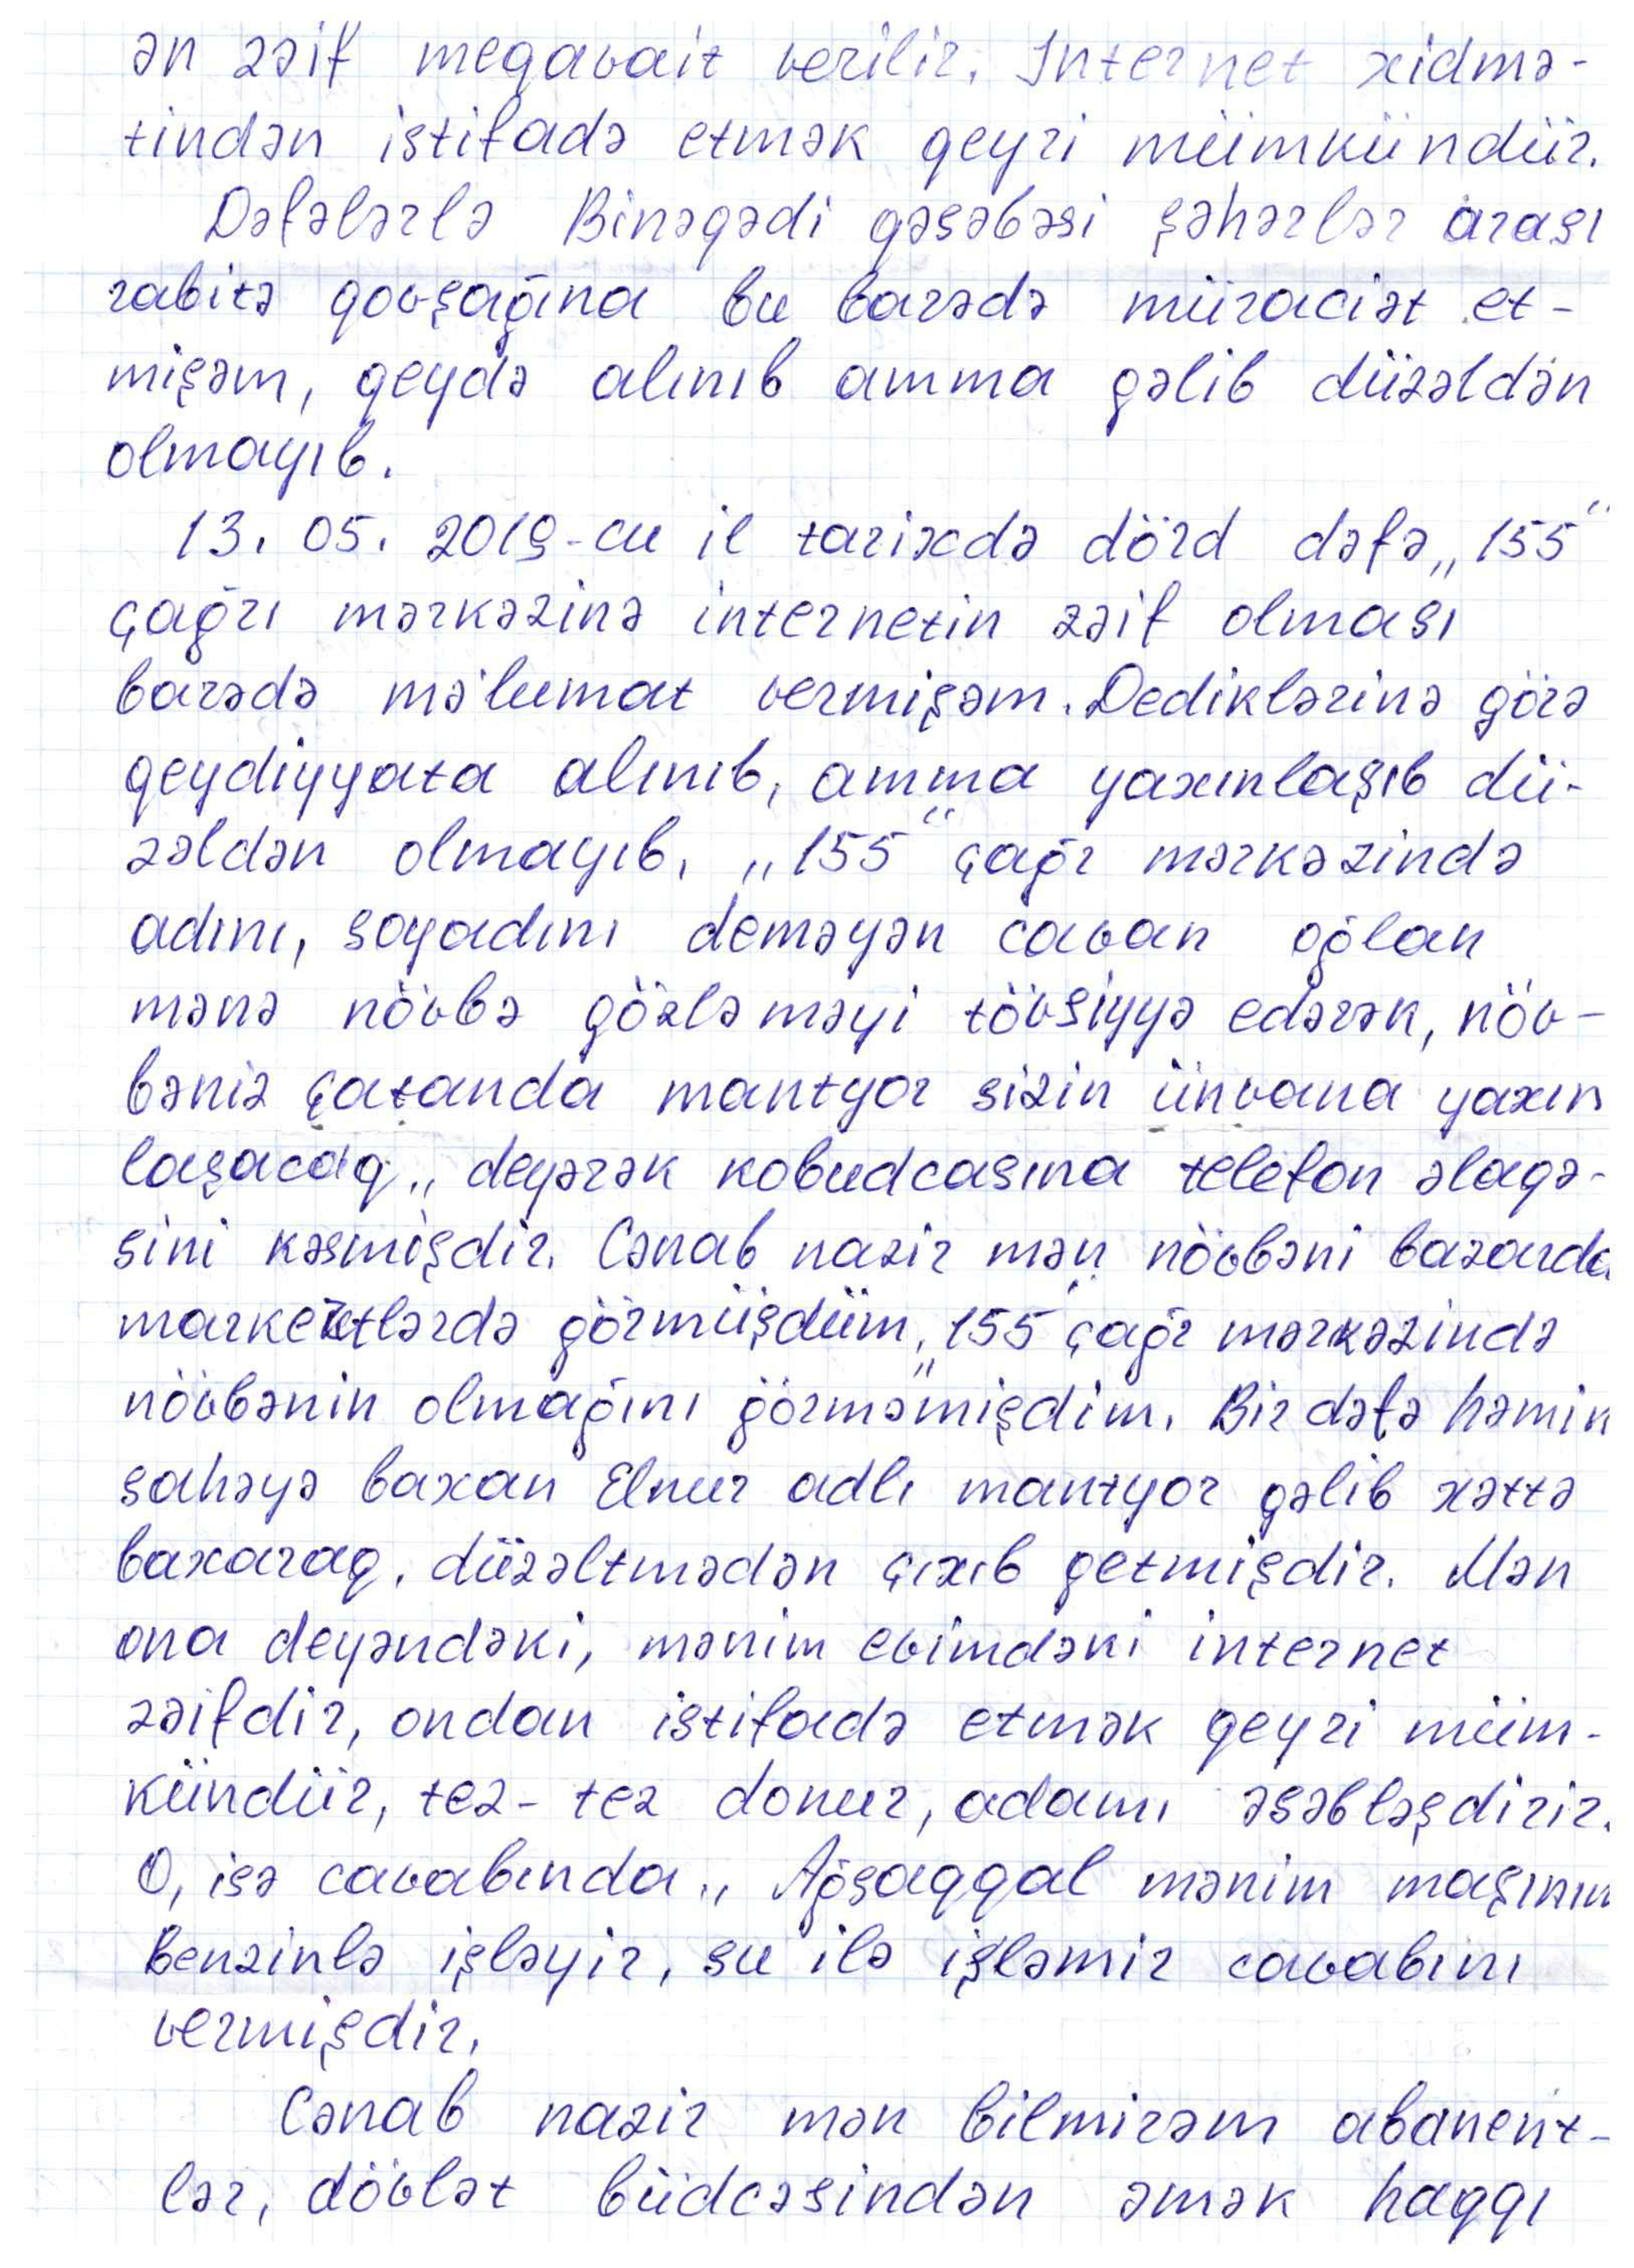 ən zəif meqavait verilir. Internet xidmə-
tindən istifadə etmək qeyri mümkündür.
Dəfələrlə Binəqədi qəsəbəsi şəhərlər arası
rabitə qovşağına bu barədə müraciət et-
mişəm, qeydə alınıb amma gəlib düzəldən
olmayıb.
13. 05. 2019-cu il tarixdə dörd dəfə „155“
çağrı mərkəzinə internetin zəif olması
barədə mə'lumat vermişəm. Dediklərinə görə
qeydiyyata alınıb, amma yaxınlaşıb dü-
zəldən olmayıb. „155“ çağr mərkəzində
adını, soyadını deməyən cavan oğlan
mənə növbə gözləməyi tövsiyyə edərək, növ-
bəniz çatanda mantyor sizin ünvana yaxın
laşacaq„ deyərək kobudcasına telefon əlaqə-
sini kəsmişdir. Cənab nazir mən növbəni bazarda
marketlərdə görmüşdüm, „155“ çağr mərkəzində
növbənin olmağını görməmişdim. Bir dəfə həmin
sahəyə baxan Elnur adlı mantyor gəlib xəttə
baxaraq, düzəltmədən çıxıb getmişdir. Mən
ona deyəndəki, mənim evimdəki internet
zəifdir, ondan istifadə etmək qeyri müm-
kündür, tez-tez donur, adamı əsəbləşdirir.
O, isə cavabında „ Ağsaqqal mənim maşınım
Benzinlə işləyir, su ilə işləmir cavabını
vermişdir.
Cənab nazir mən bilmirəm abanent-
lər, dövlət büdcəsindən əmək haqqı